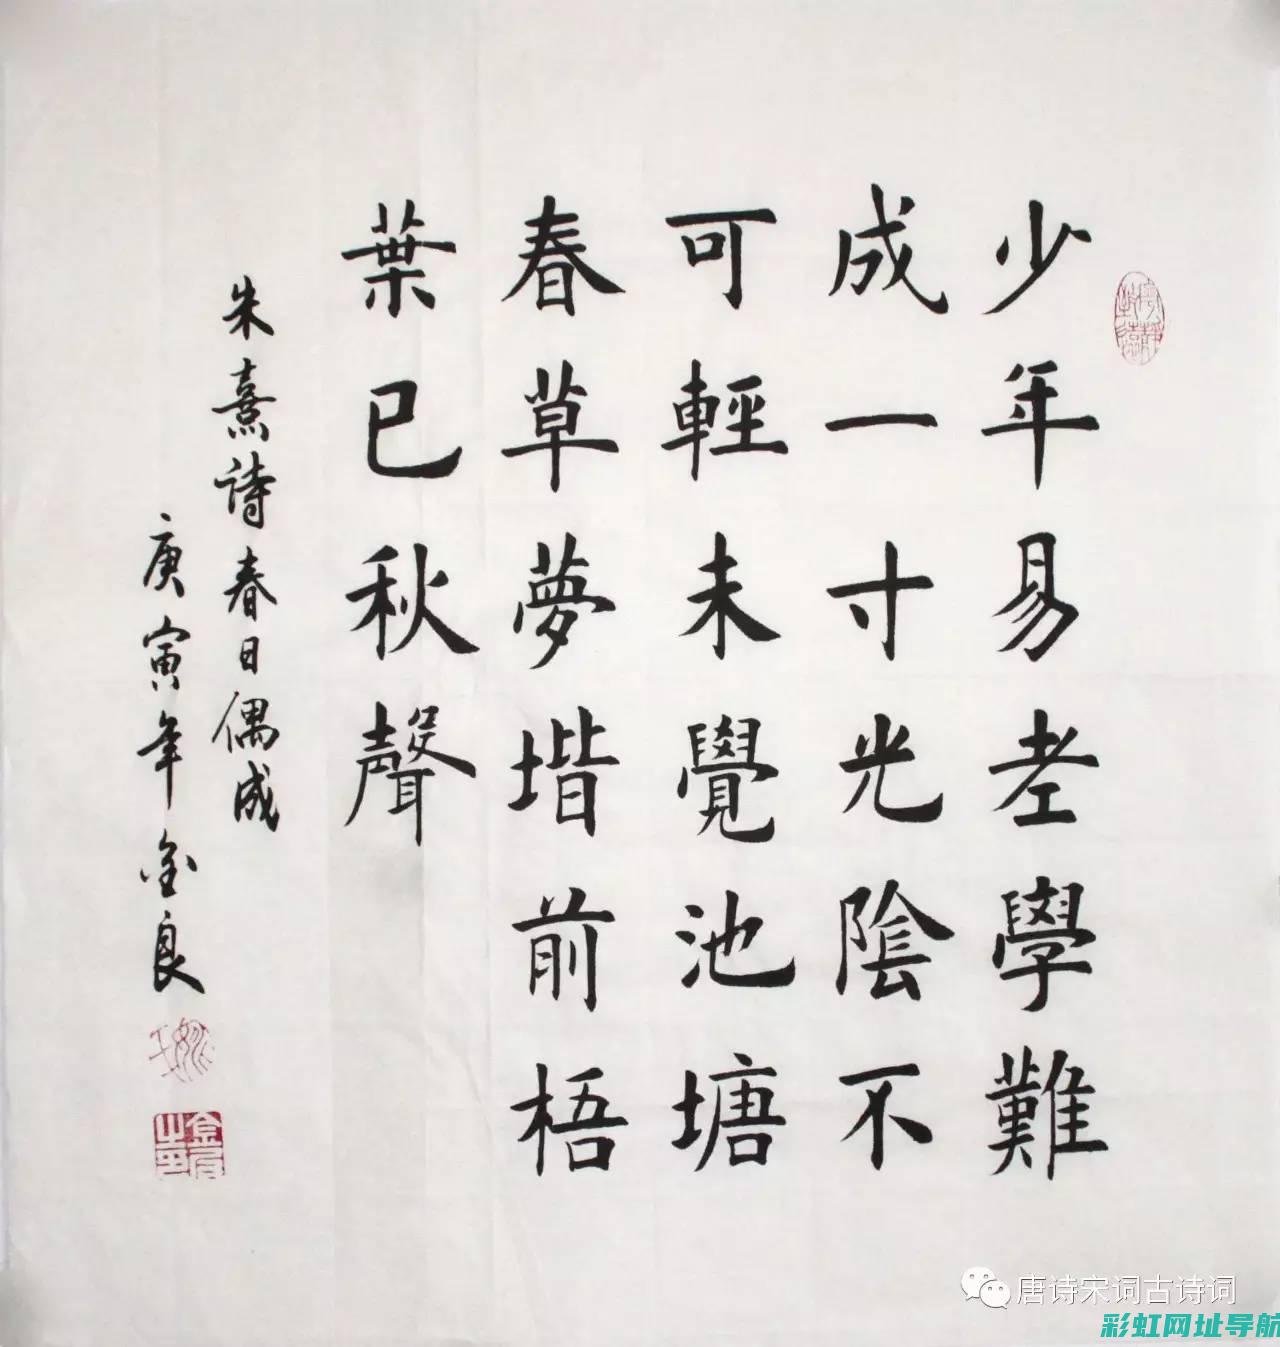 少年易老學難
成一寸光陰不
可輕未覺池塘
春草夢堦前梧
葉已秋聲
朱熹詩春日偶成
庚寅年金良
金良之印
唐诗宋词古诗词
彩虹网址导航